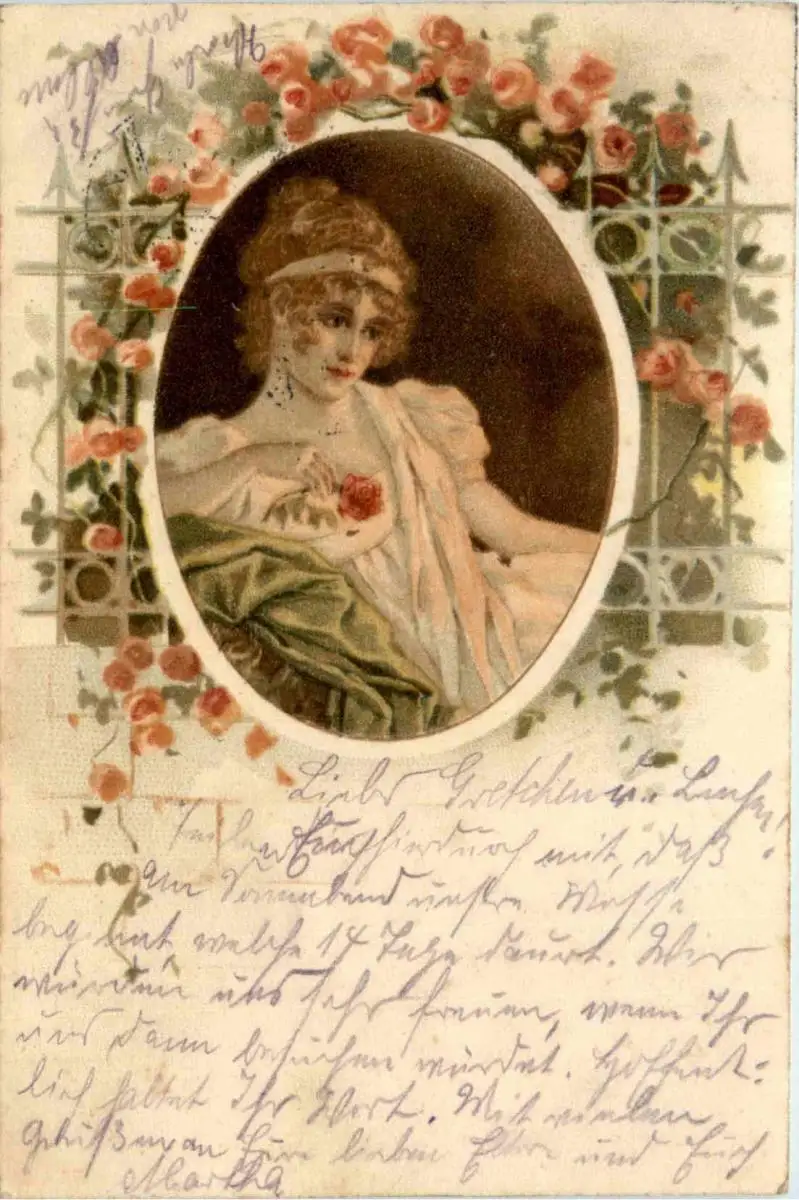 Liebe Gretchen u.
Teile Euch hierdurch mit, daß
am Sonnabend unsre Messe
beginnt welche 14 Tage dauert. Wir
würden uns sehr freuen, wenn Ihr
uns dann besuchen würdet. Hoffent-
lich haltet Ihr Wort. Mit vielen
Grüßen an Eure lieben Eltern und Euch
Martha